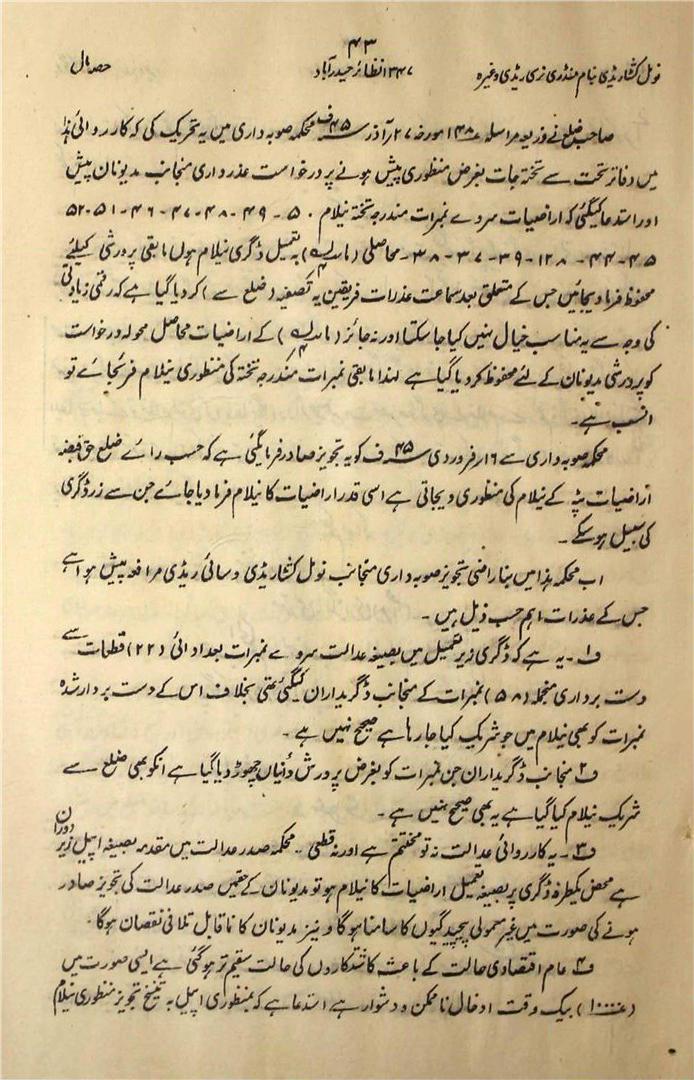 ۴۳
نول کشٹاریڈی نیام منڈری نرسی ریڈی وغیرہ ۱۳۴۷ نظائر حیدرآباد حصہ مال
صاحب ضلع نے ذریعہ مراسلہ ۱۴۸۰ مورخہ ۲۷ آذر ۴۵ ف محکمہ صوبہ داری میں یہ تحریک کی کہ کارروائی ہذا
میں دفاتر تحت سے تختہ جات بغرض منظوری پیش ہونے پر درخواست عذرداری منجانب مدیونان پیش
اور استدعا کیگئی کہ اراضیات سروے نمبرات مندرجہ تختہ نیلام ۵۰ - ۴۹ - ۴۸ - ۴۷ - ۴۶ - ۵۱ - ۵۲
۴۵ - ۴۴ - ۱۲۸ - ۳۹ - ۳۷ - ۳۸ - محاصلی ( ) بہ تعمیل ڈگری نیلام ہوں مابقی پرورشی کیلئے
محفوظ فرما دیجائیں جس کے متعلق بعد سماعت عذرات فریقین یہ تصفیہ (ضلع سے) کردیا گیا ہے کہ رقمی زیادتی
کی وجہ سے یہ مناسب خیال نہیں کیا جاسکتا اور نہ جائز ( ) کے اراضیات محاصل محولہ درخواست
کو پرورشی مدیونان کے لئے محفوظ کردیا گیا ہے لہذا مابقی نمبرات مندرجہ تختہ کی منظوری نیلام فرمائیجائے تو
انسب ہے۔
محکمہ صوبہ داری سے ۱۶ فروردی ۴۵ ف کو یہ تجویز صادر فرمائیگئی ہے کہ حسب رائے ضلع حق قبضہ
اراضیات پٹہ کے نیلام کی منظوری دیجاتی ہے اسی قدر اراضیات کا نیلام فرمادیا جائے جن سے زر ڈگری
کی سبیل ہوسکے۔
اب محکمہ ہذا میں بناراضی تجویز صوبہ داری منجانب نول کشٹاریڈی وسائی ریڈی مرافعہ پیش ہوا ہے
جس کے عذرات اہم حسب ذیل ہیں۔
ف۱۔ یہ ہے کہ ڈگری زیر تعمیل میں بصیغہ عدالت سروے نمبرات بعد ادائی (۲۲) قطعات سے
دست برداری منجملہ (۵۸) نمبرات کے منجانب ڈگریداران کیگئی تھی بخلاف اس کے دست بردار شدہ
نمبرات کو بھی نیلام میں جو شریک کیا جارہا ہے صحیح نہیں ہے۔
ف۲ منجانب ڈگریداران جن نمبرات کو بغرض پرورش چھوڑ دیا گیا ہے انکو بھی ضلع سے
شریک نیلام کیا گیا ہے یہ بھی صحیح نہیں ہے۔
ف۳۔ یہ کارروائی عدالت نہ تو مختتم ہے اور نہ قطعی۔ محکمہ صدر عدالت میں مقدمہ بصیغہ اپیل زیر دوران
ہے محض یکطرفہ ڈگری پر بصیغہ تعمیل اراضیات کا نیلام ہو تو مدیونان کے حق میں صدر عدالت کی تجویز صادر
ہونے کی صورت میں غیر معمولی پیچیدگیوں کا سامنا ہوگا و نیز مدیونان کا ناقابل تلافی نقصان ہوگا۔
ف۴ عام اقتصادی حالت کے باعث کاشتکاروں کی حالت سقیم تر ہوگئی ہے ایسی صورت میں
( ) بیک وقت ادخال ناممکن و دشوار ہے استدعا ہے کہ بمنظوری اپیل بہ تنسیخ تجویز منظوری نیلام